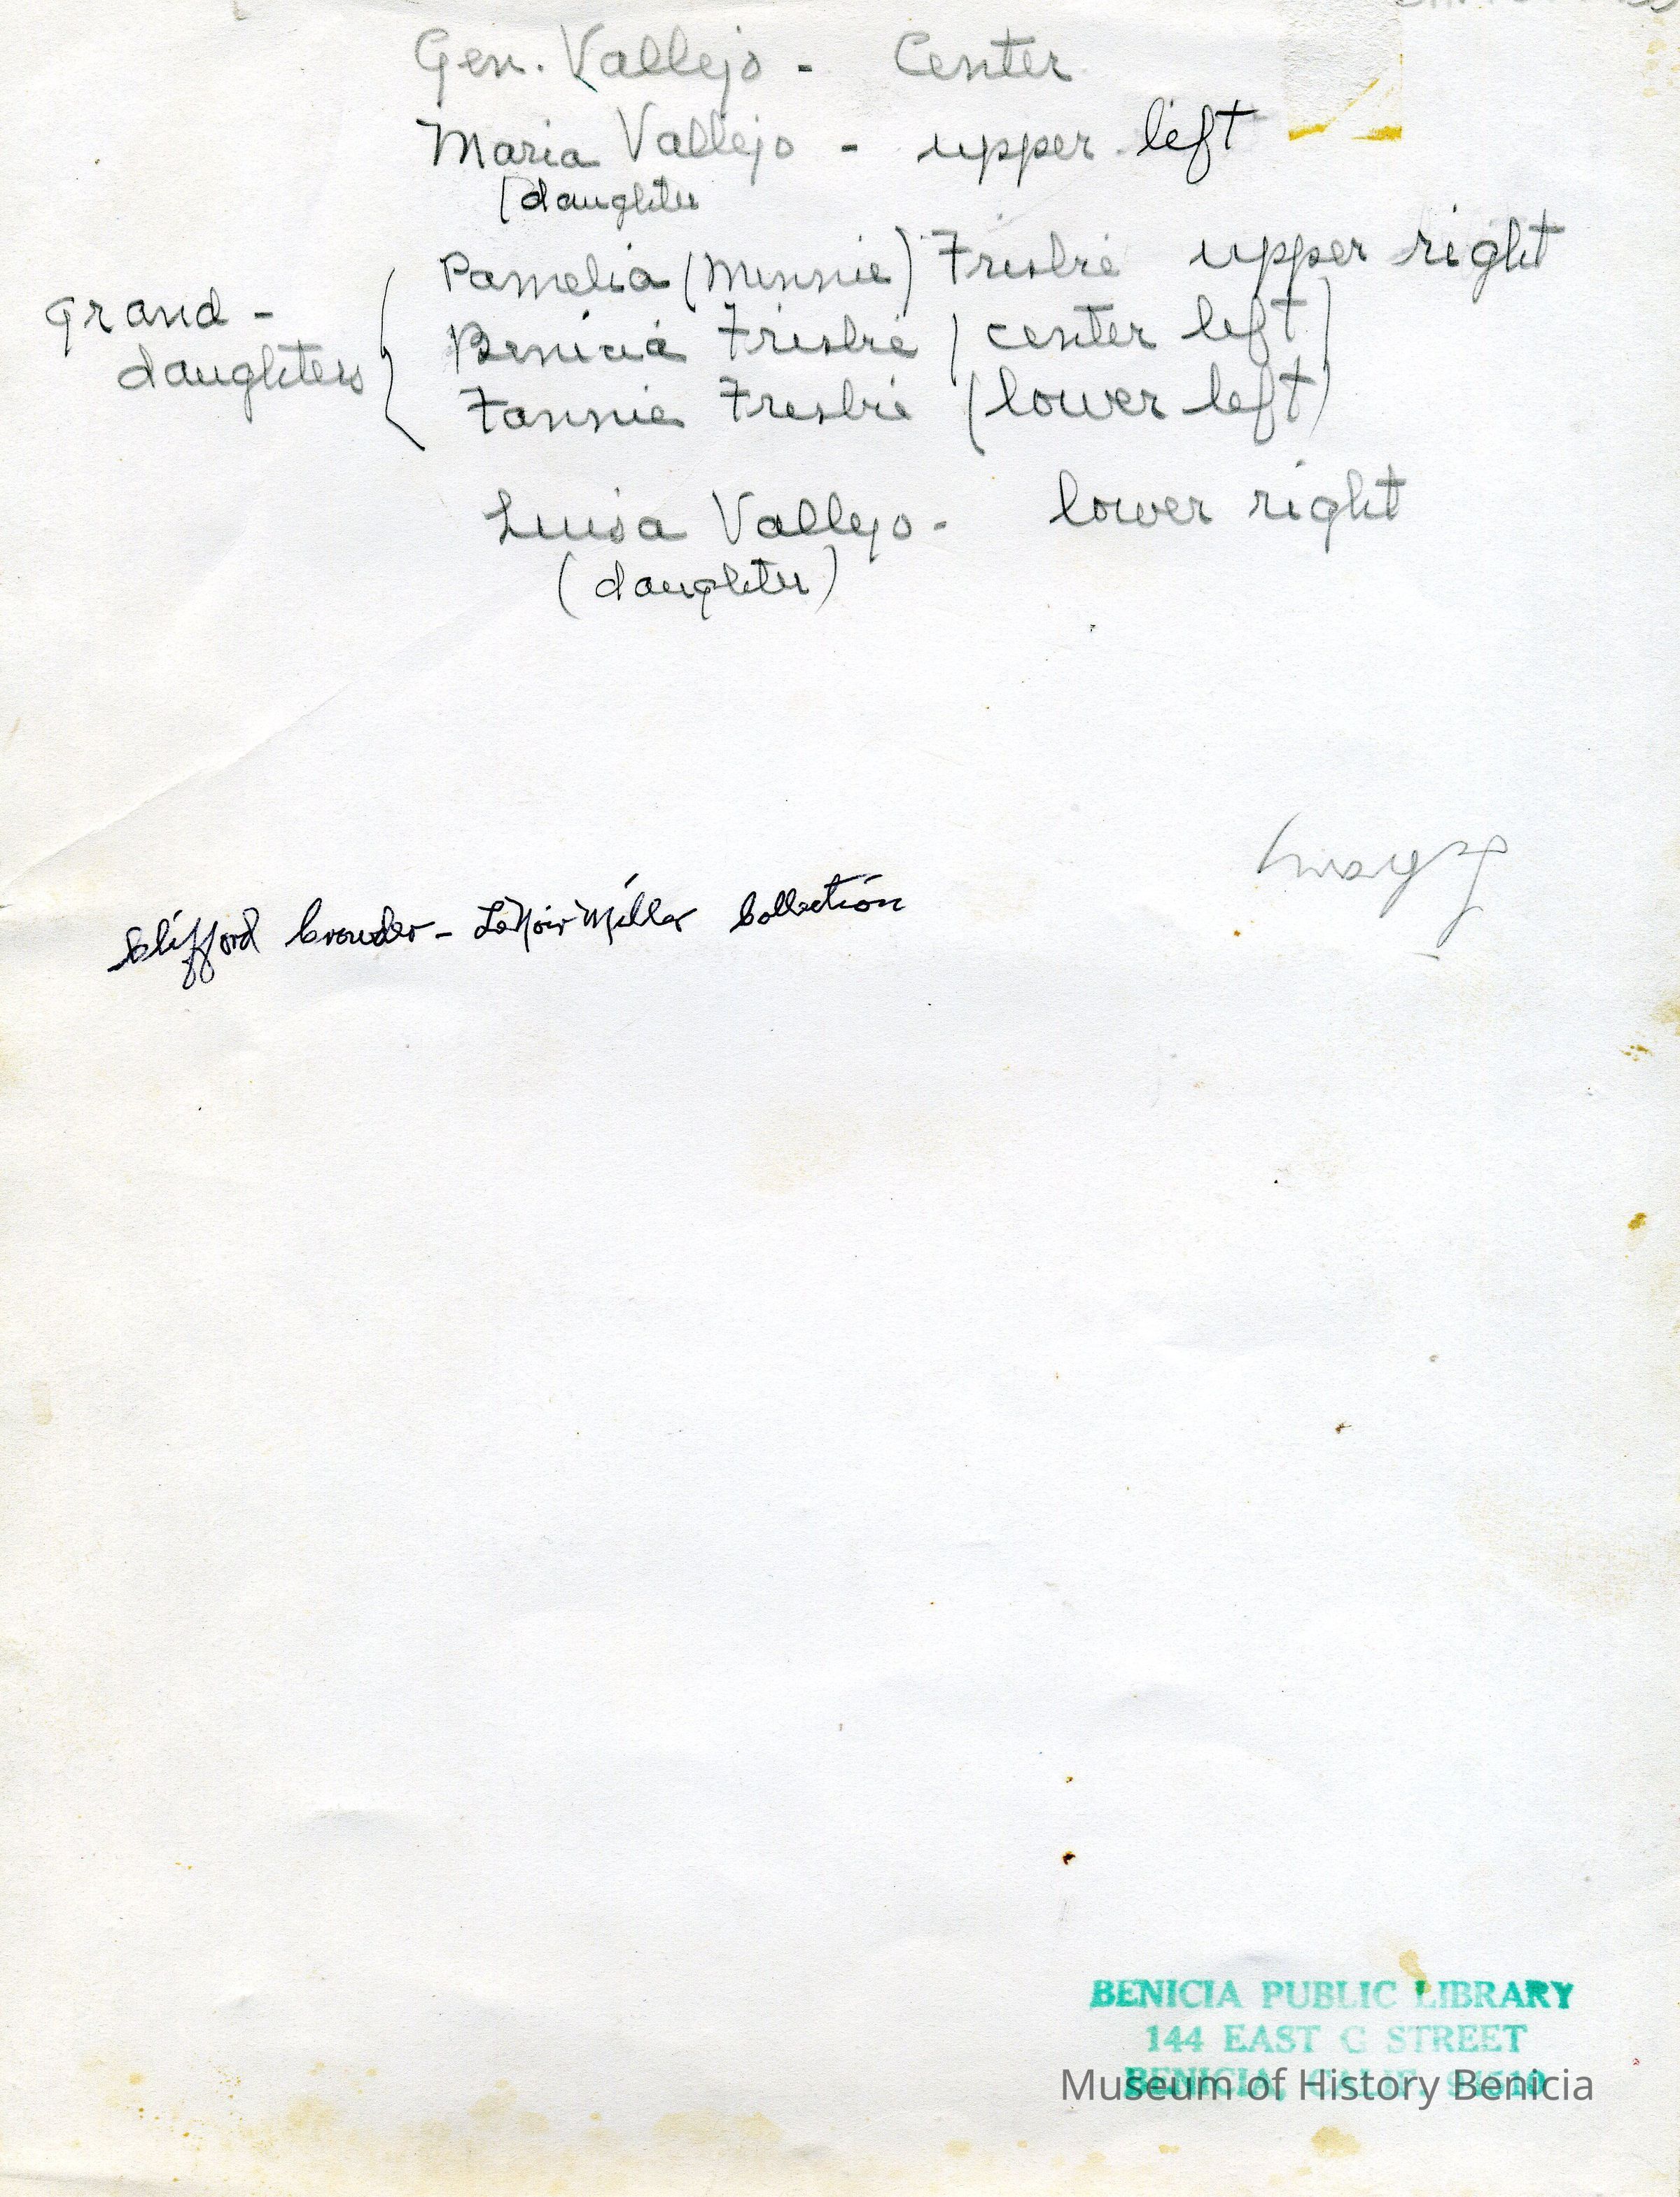 Gen. Vallejo - Center
Maria Vallejo - upper left
(daughter
Pamelia (Minnie) Frisbie upper right
Grand-
daughters
Benicia Frisbie (center left)
Fannie Frisbie (lower left)
Luisa Vallejo - lower right
(daughter)
Clifford Crowder - LeNoir Miller Collection
BENICIA PUBLIC LIBRARY
144 EAST G STREET
BENICIA, CALIF. 94510
Museum of History Benicia